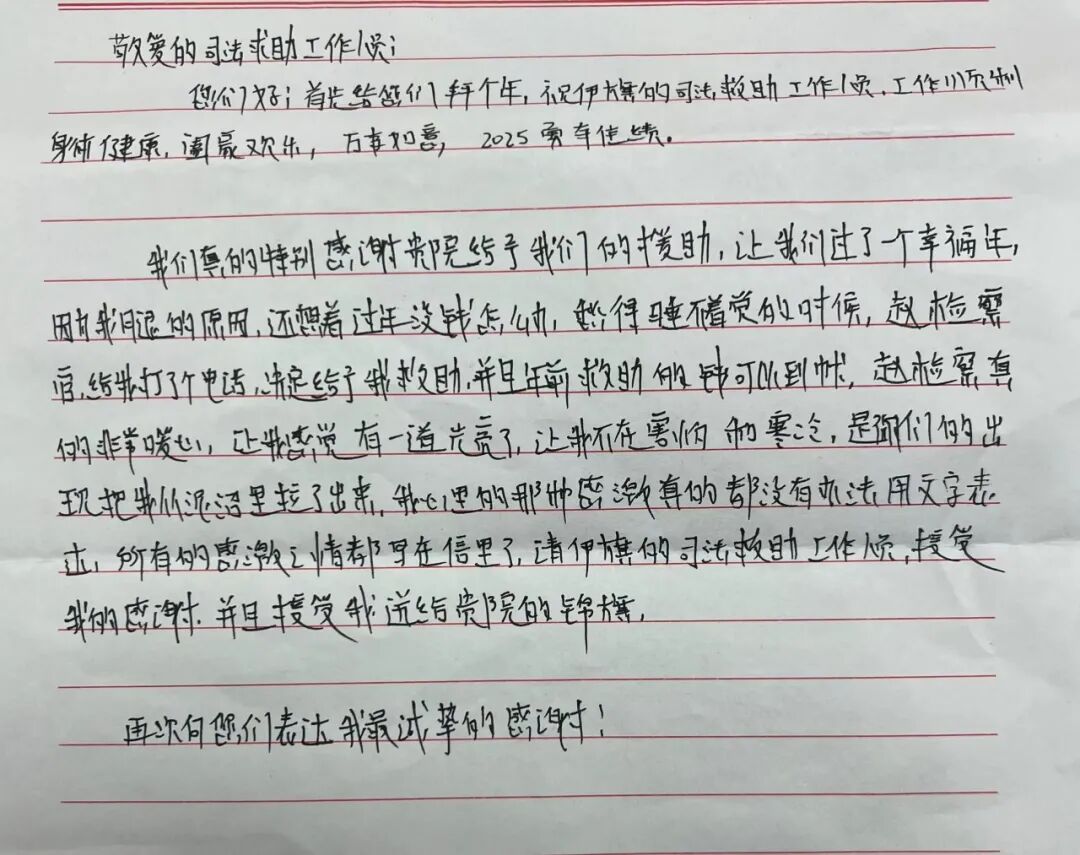 敬爱的司法求助工作人员:
您们好!首先给您们拜个年,祝伊旗的司法救助工作人员,工作顺利
身体健康,阖家欢乐,万事如意,2025再创佳绩。
我们真的特别感谢贵院给予我们的援助,让我们过了一个幸福年,
因为我的原因,还想着过年没钱怎么办,愁得睡不着觉的时候,赵检察
官给我打了个电话,决定给予我救助,并且年前救助的钱可以到帐,赵检察真
的非常暖心,让我感觉有一道光亮了,让我不在害怕和寒冷,是您们的出
现把我从泥沼里拉了出来,我心里的那种感激真的都没有办法用文字表
达,所有的感激之情都写在信里了,请伊旗的司法救助工作人员,接受
我的感谢,并且接受我送给贵院的锦旗,
再次向您们表达我最诚挚的感谢!